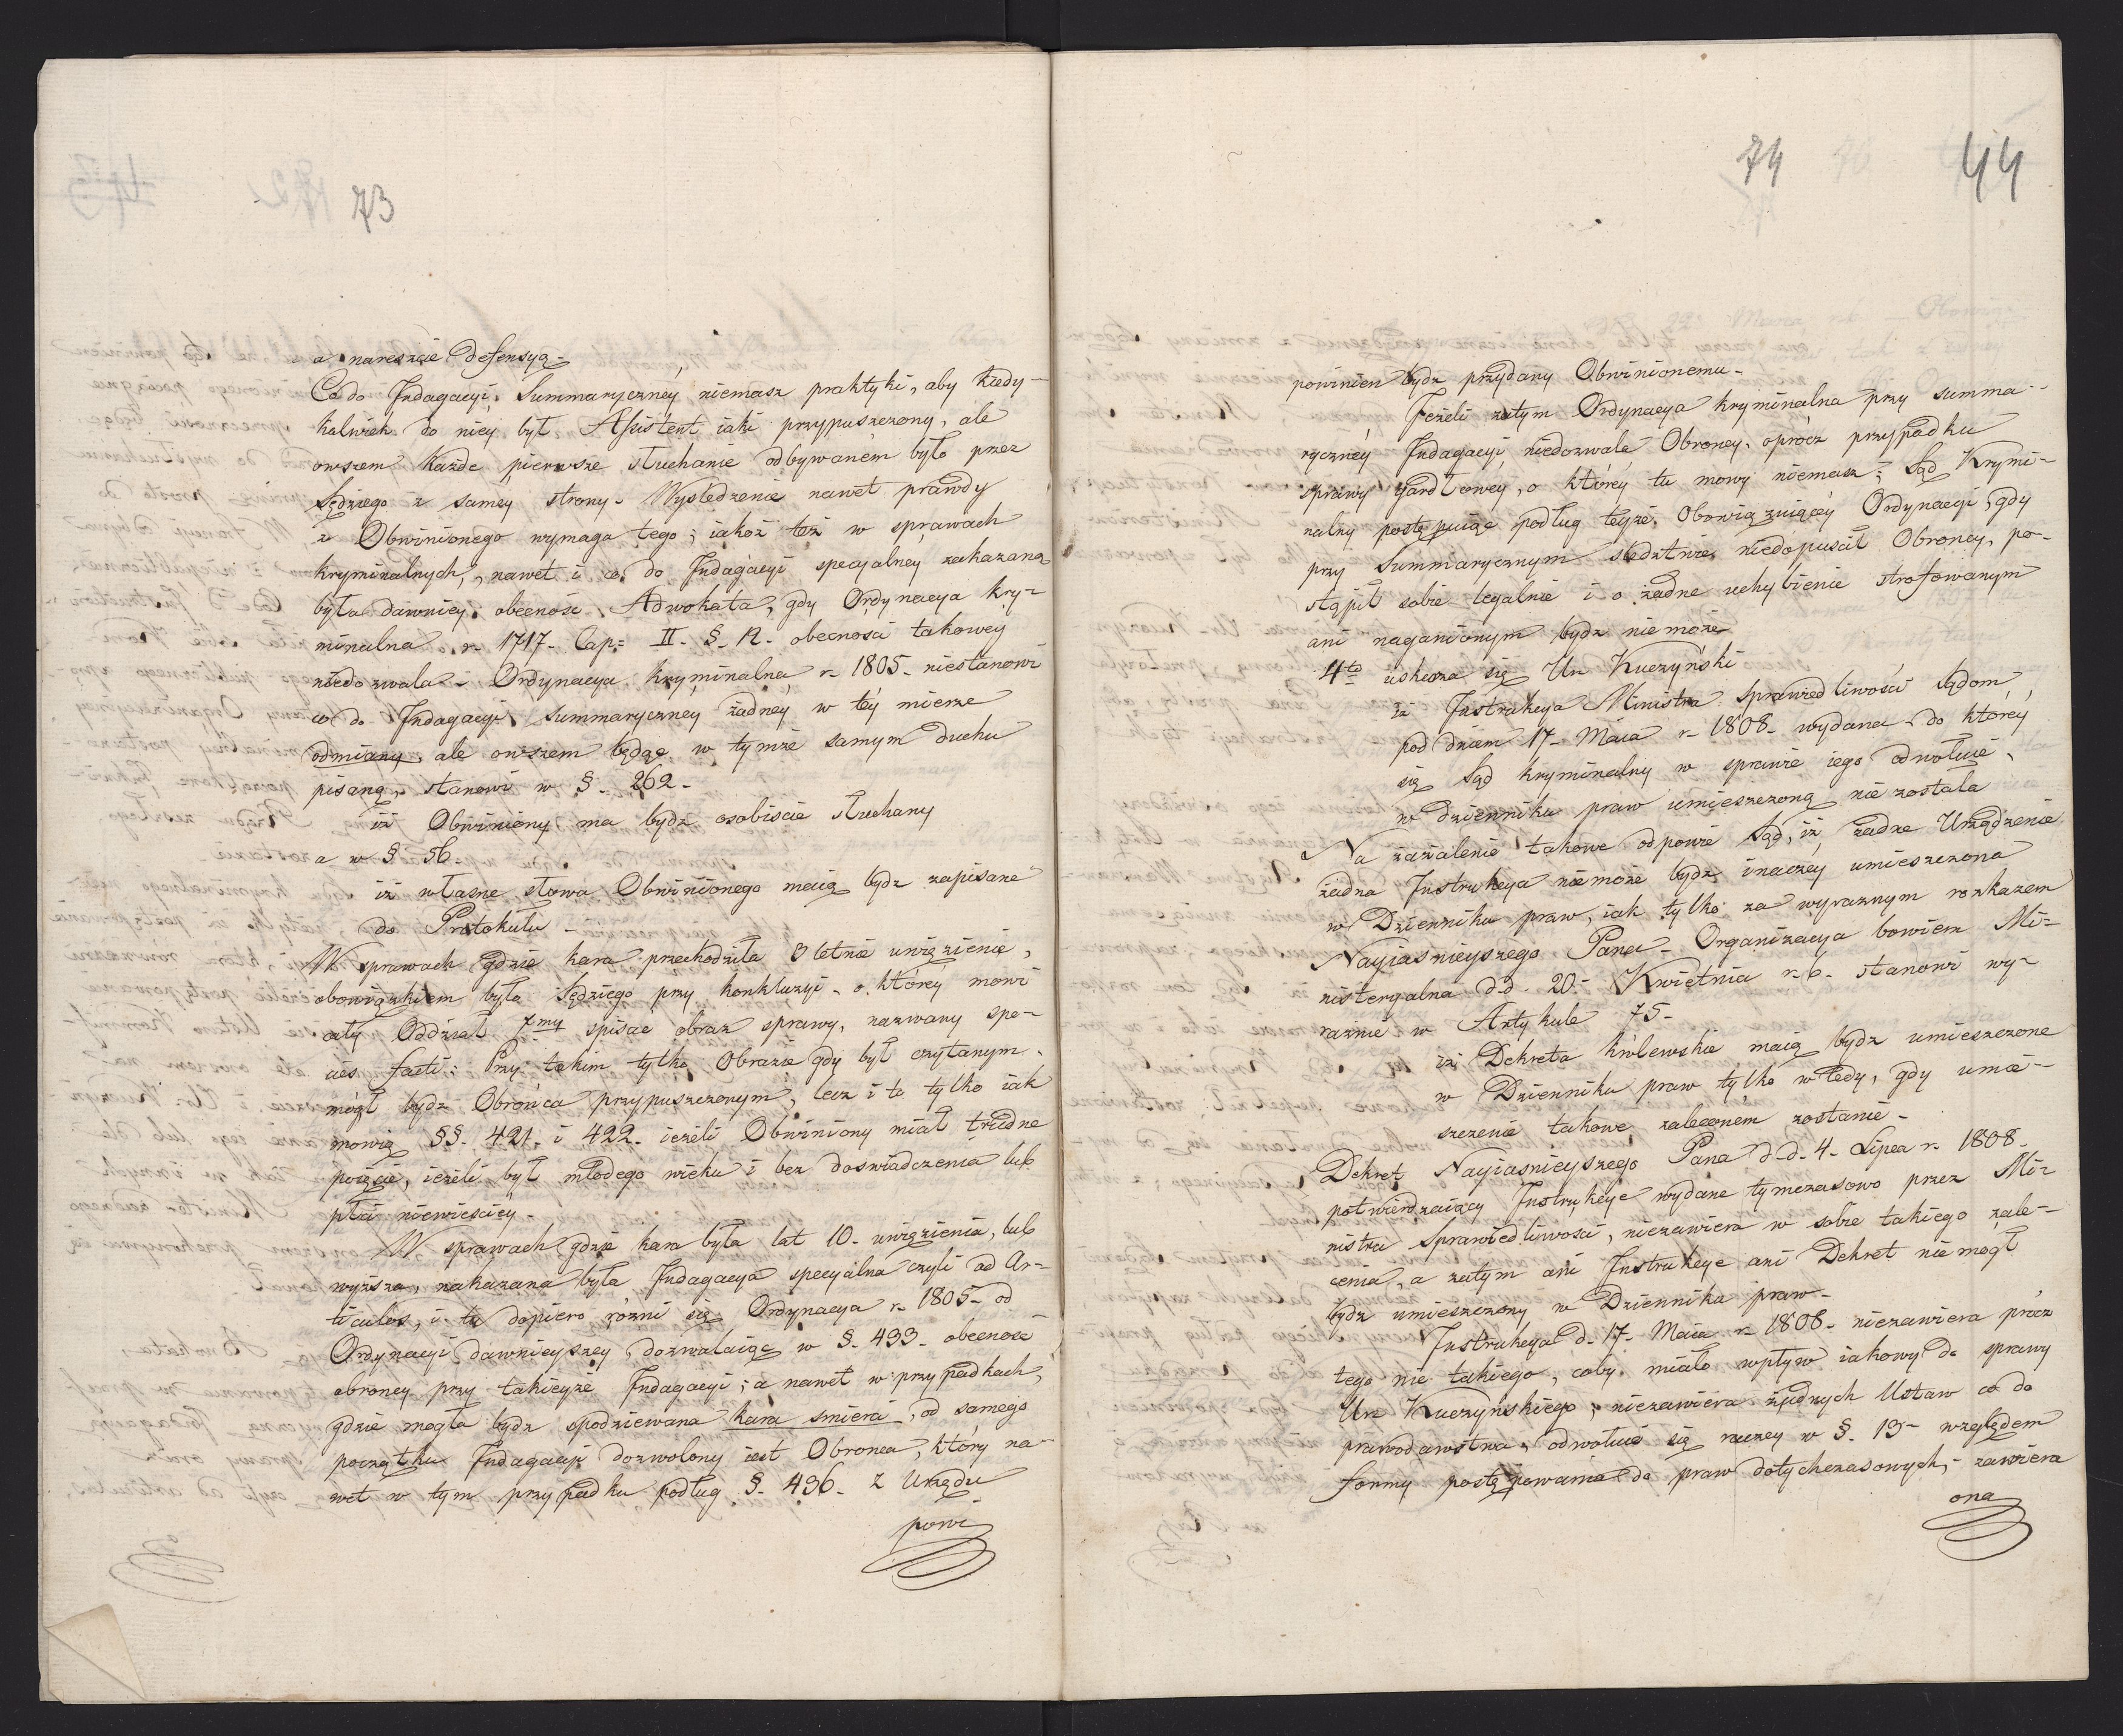 73
a nareszcie Defensyą -
Co do Jndagacyi Summaryczney niemasz praktyki, aby kiedy-
kolwiek do niey był Assistent iaki przypuszczony, ale
owszem każde pierwsze słuchanie odbywaném było przez
Sędziego z samey strony. Wysledzenie nawet prawdy
z Obwinionego wymaga tego; iakoż też w sprawach
kryminalnych, nawet i co do Jndagacyi specyalney zakazaną
była dawniey obecność Adwokata, gdy Ordynacya Kry-
minalna r. 1717. Cap: II. §. 12. obecności takowey
niedozwala. Ordynacya kryminalna r. 1805. niestanowi
co do Jndagacyi Summaryczney żadney w tey mierze
odmiany, ale owszem będąc w tymże samym duchu
pisaną, stanowi w §. 262.
iż Obwiniony ma bydz osobiscie słuchany
a w § 56.
iż własne słowa Obwinionego maią bydz zapisane
do Protokułu -
W sprawach gdzie kara przechodziła 3 letnie uwięzienie,
obowiązkiem było Sędziego przy konkluzyi - o którey mowi
cały Oddział 7my spisać obraz sprawy, nazwany spe-
cies facti; Przy takim tylko Obrazie gdy był czytanym,
mógł bydz Obrońca przypuszczonym, lecz i to tylko iak
mowią §§. 421. i 422. ieżeli Obwiniony miał trudne
poięcie, ieżeli był młodego wieku i bez doswiadczenia lub
płci niewiesciey -
W sprawach gdzie kara była lat 10. uwięzienia, lub
wyższa, nakazana była Jndagacya specyalna czyli ad Ar-
ticulos, i tu dopiero rózni się Ordynacya r. 1805. od
Ordynacyi dawnieyszey, dozwalaiąc w §. 433. obecność
obroney przy takieyże Jndagacyi; a nawet w przypadkach,
gdzie mogła bydz spodziewana kara smierci, od samego
początku Jndagacyi dozwolony iest Obronca, który na-
wet w tym przypadku podług §. 436. z Urzędu
powi-
74
44
powinien bydz przydany Obwinionemu -
Jeżeli zatym Ordynacya kryminalna przy summa-
ryczney Jndagacyi niedozwala Obroney, oprócz przypadku
sprawy gardłowey, o którey tu mowy niemasz; Sąd Krymi-
nalny postępuiąc podług teyże obowiązuiącey Ordynacyi, gdy
przy Summarycznym sledztwie niedopuscił Obroney, po-
stąpił sobie legalnie i o żadne uchybienie strofowanym
ani naganionym bydz nie może
4to uskarza się Ur. Kuczyński
iż Jnstrukcya Ministra Sprawiedliwości Sądom
pod dniem 17. Maia r. 1808. wydana do którey
się Sąd kryminalny w sprawie iego odwołuie,
w dzienniku praw umieszczoną nie została
Na żażalenie takowe odpowie Sąd, iż żadne Urządzenie
żadna Jnstrukcya nie może bydz inaczey umieszczona
w Dzienniku praw, iak tylko za wyraznym rozkazem
Nayiasnieyszego Pana - Organizacya bowiem Mi-
nisteryalna d.d. 20. Kwietnia r. b. stanowi wy-
raźnie w Artykule 75.
iż Dekreta królewskie maią bydz umieszczone
w Dzienniku praw tylko wtedy, gdy umie-
szczenie takowe zaleconem zostanie -
Dekret Nayiasnieyszego Pana d.d. 4. Lipca r. 1808.
potwierdzaiący Jnstrukcye wydane tymczasowo przez Mi-
nistra Sprawiedliwości, niezawiera w sobie takiego zale-
cenia, a zatym ani Jnstrukcye ani Dekret nie mogł
bydz umieszczony w Dzienniku praw -
Jnstrukcya d. 17. Maia r. 1808. niezawiera prócz
tego nic takiego, coby miało wpływ iakowy do sprawy
Ur. Kuczyńskiego; niezawiera żadnych Ustaw co do
prawodawstwa, odwołuie się raczey w §. 13 - względem
formy postępowania do praw dotychczasowych, - zawiera
ona